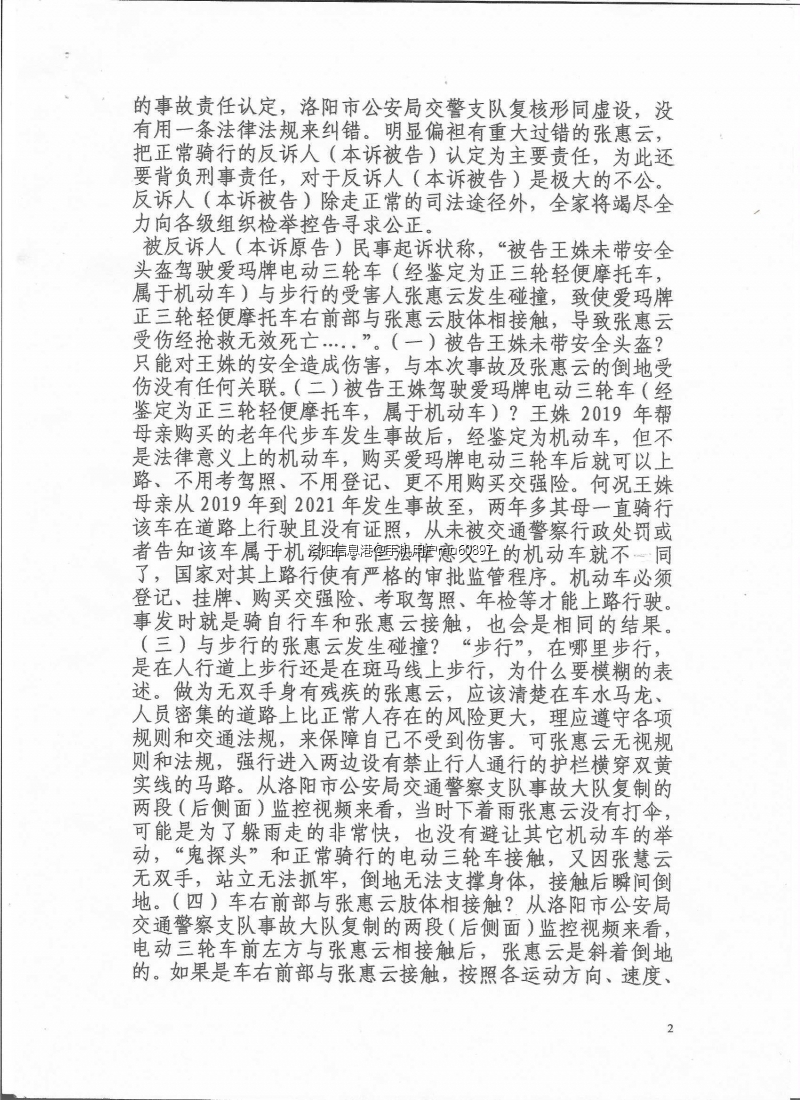 的事故责任认定，洛阳市公安局交警支队复核形同虚设，没
有用一条法律法规来纠错。明显偏袒有重大过错的张惠云，
把正常骑行的反诉人（本诉被告）认定为主要责任，为此还
要背负刑事责任，对于反诉人（本诉被告）是极大的不公。
反诉人（本诉被告）除走正常的司法途径外，全家将竭尽全
力向各级组织检举控告寻求公正。
被反诉人（本诉原告）民事起诉状称，“被告王姝未带安全
头盔驾驶爱玛牌电动三轮车（经鉴定为正三轮轻便摩托车，
属于机动车）与步行的受害人张惠云发生碰撞，致使爱玛牌
正三轮轻便摩托车右前部与张惠云肢体相接触，导致张惠云
受伤经抢救无效死亡…..”。（一）被告王姝未带安全头盔？
只能对王姝的安全造成伤害，与本次事故及张惠云的倒地受
伤没有任何关联。（二）被告王姝驾驶爱玛牌电动三轮车（经
鉴定为正三轮轻便摩托车，属于机动车）？王姝 2019 年帮
母亲购买的老年代步车发生事故后，经鉴定为机动车，但不
是法律意义上的机动车，购买爱玛牌电动三轮车后就可以上
路、不用考驾照、不用登记、更不用购买交强险。何况王姝
母亲从 2019 年到 2021 年发生事故至，两年多其母一直骑行
该车在道路上行驶且没有证照，从未被交通警察行政处罚或
者告知该车属于机动车。但法律意义上的机动车就不一同
了，国家对其上路行使有严格的审批监管程序。机动车必须
登记、挂牌、购买交强险、考取驾照、年检等才能上路行驶。
事发时就是骑自行车和张惠云接触，也会是相同的结果。
（三）与步行的张惠云发生碰撞？“步行”，在哪里步行，
是在人行道上步行还是在斑马线上步行，为什么要模糊的表
述。做为无双手身有残疾的张惠云，应该清楚在车水马龙、
人员密集的道路上比正常人存在的风险更大，理应遵守各项
规则和交通法规，来保障自己不受到伤害。可张惠云无视规
则和法规，强行进入两边设有禁止行人通行的护栏横穿双黄
实线的马路。从洛阳市公安局交通警察支队事故大队复制的
两段（后侧面）监控视频来看，当时下着雨张惠云没有打伞，
可能是为了躲雨走的非常快，也没有避让其它机动车的举
动，“鬼探头”和正常骑行的电动三轮车接触，又因张慧云
无双手，站立无法抓牢，倒地无法支撑身体，接触后瞬间倒
地。（四）车右前部与张惠云肢体相接触？从洛阳市公安局
交通警察支队事故大队复制的两段（后侧面）监控视频来看，
电动三轮车前左方与张惠云相接触后，张惠云是斜着倒地
的。如果是车右前部与张惠云接触，按照各运动方向、速度、
2